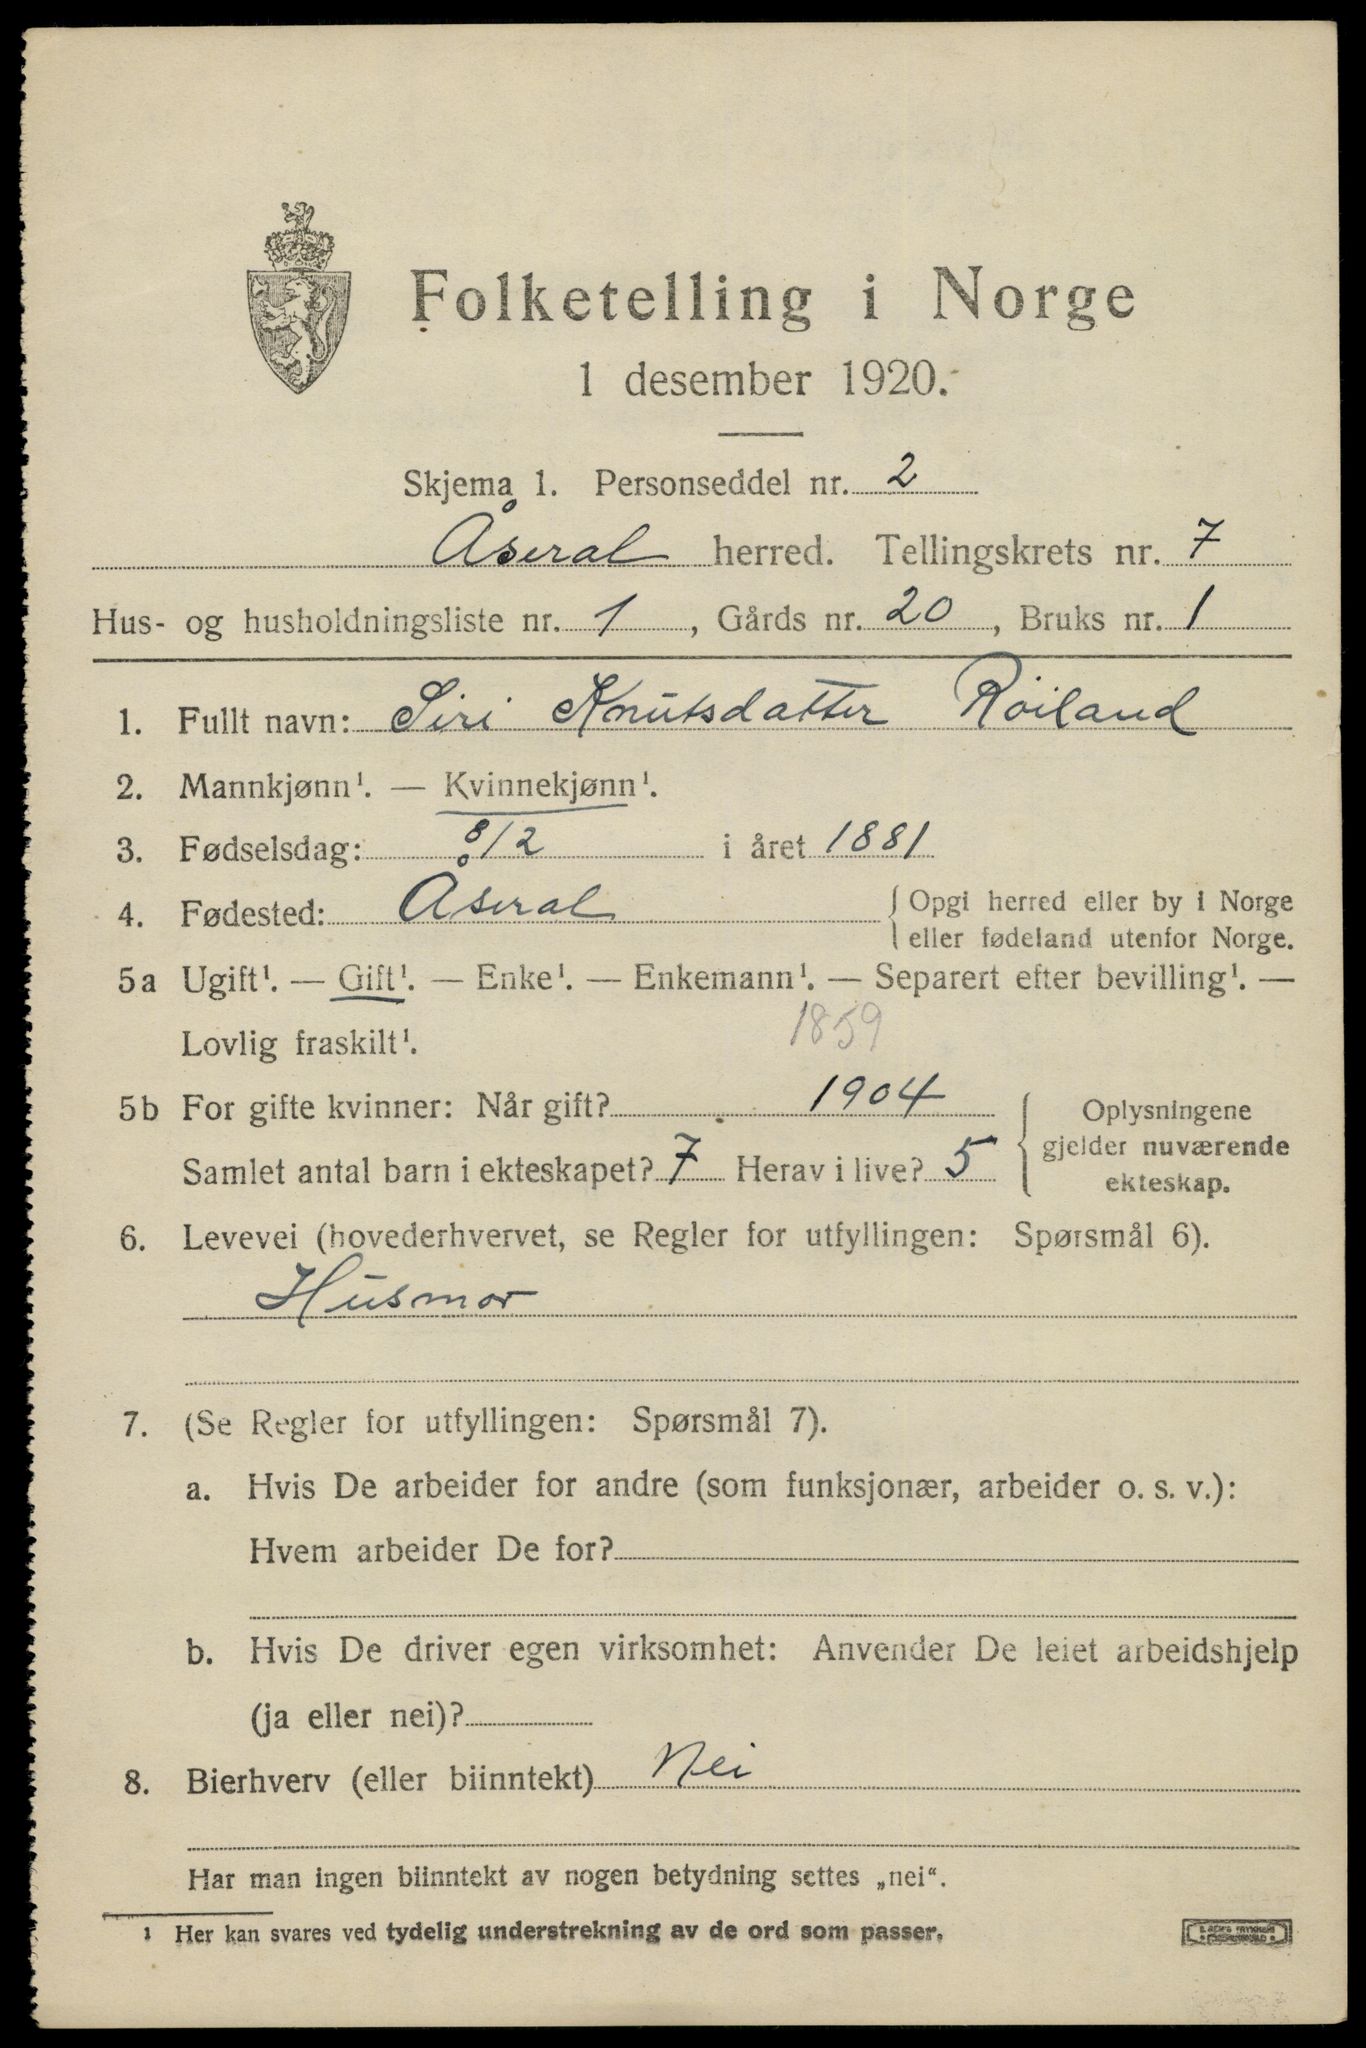 Folketelling i Norge
1 desember 1920.
Skjema 1. Personseddel nr. 2
Åseral herred. Tellingskrets nr. 7
Hus- og husholdningsliste nr. 1, Gårds nr. 20, Bruks nr. 1
1. Fullt navn: Siri Knutsdatter Röiland
2. Mannkjønn¹. — Kvinnekjønn¹.
3. Fødselsdag: 8/2 i året 1881
4. Fødested: Åseral { Opgi herred eller by i Norge
eller fødeland utenfor Norge.
5a Ugift¹. — Gift¹. — Enke¹. — Enkemann¹. — Separert efter bevilling¹. —
Lovlig fraskilt¹. 1859
5b For gifte kvinner: Når gift? 1904
Samlet antal barn i ekteskapet? 7 Herav i live? 5
{ Oplysningene
gjelder nuværende
ekteskap.
6. Levevei (hovederhvervet, se Regler for utfyllingen: Spørsmål 6).
Husmor
7. (Se Regler for utfyllingen: Spørsmål 7).
a. Hvis De arbeider for andre (som funksjonær, arbeider o. s. v.):
Hvem arbeider De for?
b. Hvis De driver egen virksomhet: Anvender De leiet arbeidshjelp
(ja eller nei)?
8. Bierhverv (eller biinntekt) Nei
Har man ingen biinntekt av nogen betydning settes „nei“.
¹ Her kan svares ved tydelig understrekning av de ord som passer.